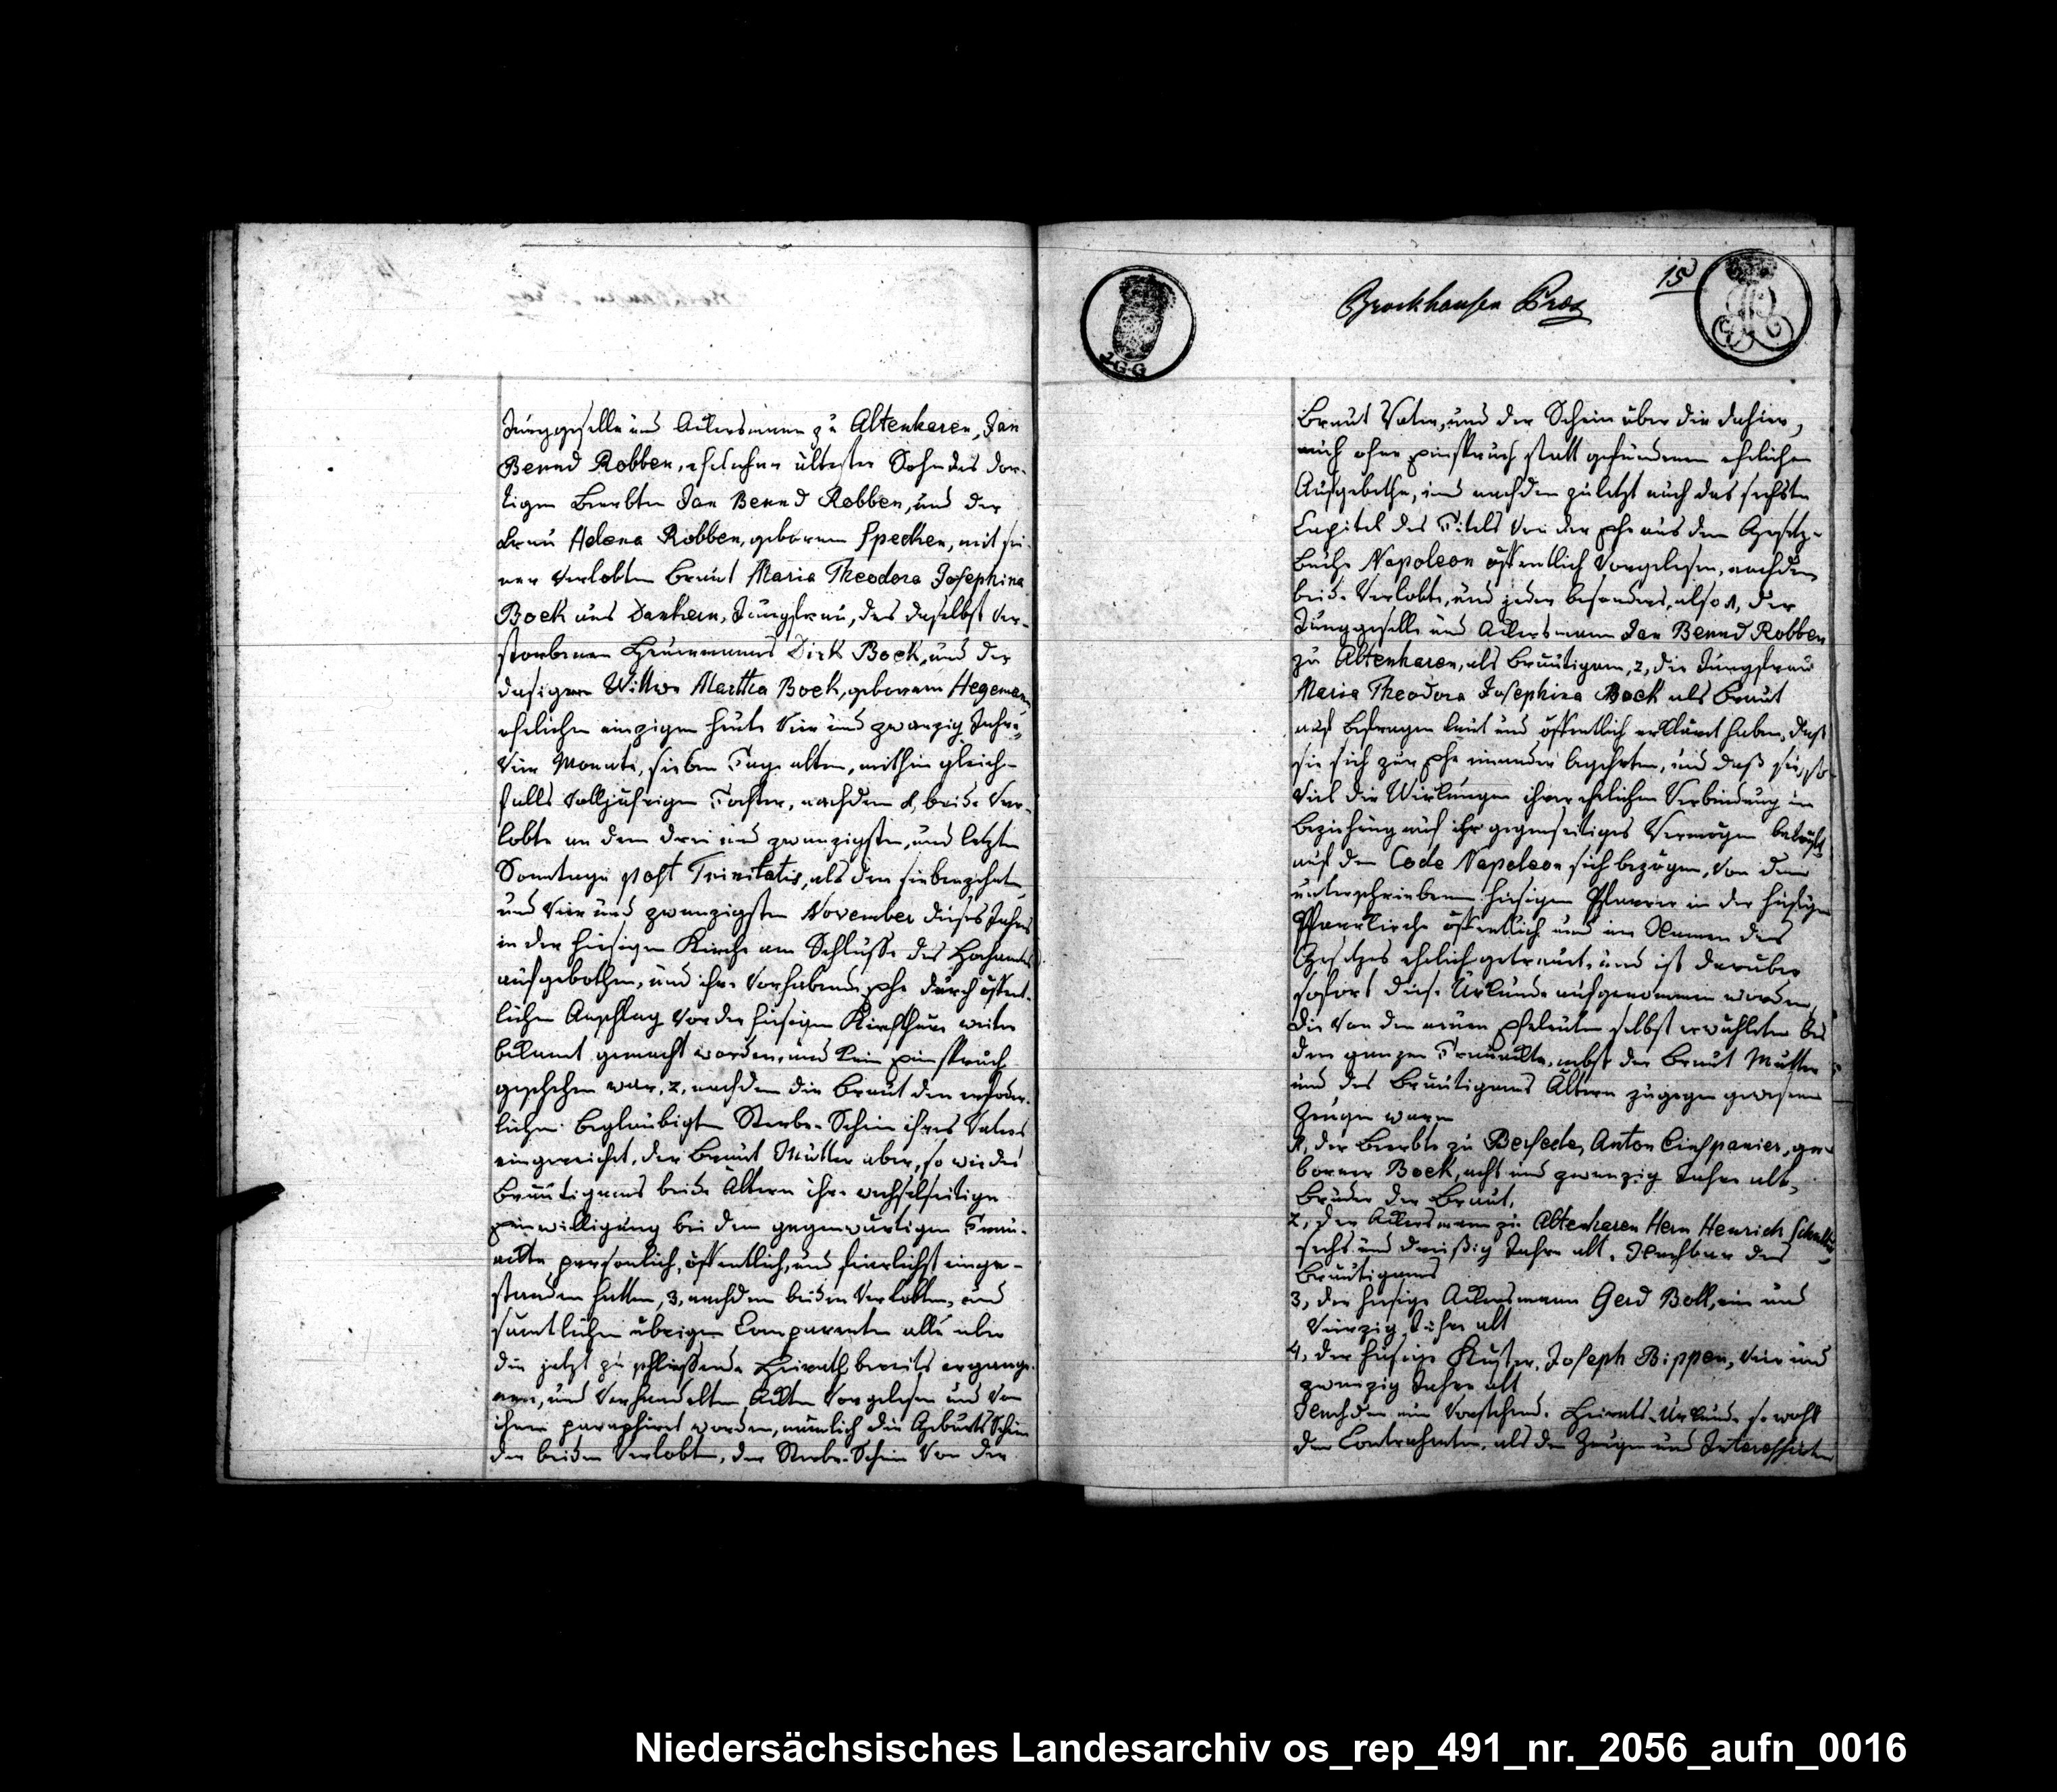 Junggeselle und Ackersmann zu Altenharen, Jan
Bernd Robben, ehelicher ältester Sohn des dor-
tigen Beerbten Jan Bernd Robben, und der
Frau Helena Robben, gebornen Specken, mit sei-
ner verlobten Braut Maria Theodora Josephina
Bock aus Dankern, Jungfrau, des daselbst ver-
storbenen Heuermanns Dirk Bock, und der
dasigen Wittwe Martha Bock, gebornen Hegeman
ehelichen einzigen heute vier und zwanzig Jahre
vier Monate, sieben Tage alten, mithin gleich-
falls volljährigen Tochter, nachdem 1, beide Ver-
lobte an dem drei und zwanzigsten, und letzten
Sonntage post Trinitatis, als den siebenzehnten
und vier und zwanzigsten November dieses Jahrs
in der hiesigen Kirche am Schlusse des Hochamts
aufgebothen, und ihre vorhabende Ehe durch öffent-
lichen Anschlag vor der hiesigen Kirchthüre weiter
bekannt gemacht worden, und kein Einspruch
geschehen war, 2, nachdem die Braut den erfoder-
lichen beglaubigten Sterbe-Schein ihres Vaters
eingereicht, der Braut Mutter aber, so wie des
Bräutigams beide Ältern ihre wechselseitige
Einwilligung bei dem gegenwärtigen Trau-
akte persönlich, öffentlich, und feierlichst einge-
standen hatten, 3, nachdem beiden Verlobten, und
sämtlichen übrigen Comparenten alle über
die jetzt zu schliessende Heirath bereits ergange-
nen, und verhandelten Akten vorgelesen und von
ihnen paraphiret worden, nämlich die Geburts Schein
der beiden Verlobten, der Sterbe-Schein von der
Brockhausen
15
GG
Braut Vater, und der Schein über die dahier,
auch ohne Einspruch statt gefundenen ehelichen
Aufgebothe, und nachdem zuletzt auch das sechste
Capitel des Titels von der Ehe aus dem Gesetz-
buche Napoleon öffentlich vorgelesen, nachdem
beide Verlobte, und jeder besonders, also 1, der
Junggeselle und Ackersmann Jan Bernd Robben
zu Altenharen, als Bräutigam, 2, die Jungfrau
Maria Theodora Josephina Bock als Braut
auf Befragen laut und öffentlich erklärt haben, daß
sie sich zur Ehe einander begehrten, und daß sie, so
viel die Wirkungen ihrer ehelichen Verbindung in
Beziehung auf ihr gegenseitiges Vermögen betrift
auf den Code Napoleon sich bezögen, von dem
unterschriebenen hiesigen Pfarrer in der hiesigen
Pfarrkirche öffentlich und im Namen des
Gesetzes ehelich getraut, und ist darüber
sofort diese Urkunde aufgenommen worden,
die von den neuen Eheleuten selbst erwählten bei
dem ganzen Trauakte, nebst der Braut Mutter
und des Bräutigams Ältern zugegen gewesenen
Zeugen waren
1, der Beerbte zu Bersede, Anton Einspanier, ge-
borner Bock, acht und zwanzig Jahre alt,
Bruder der Braut,
2, der Ackersmann zu Altenharen Hern Henrich
sechs und dreißig Jahre alt, Nachbar des
Bräutigams
3, der hiesige Ackersmann Gerd Boll, ein und
vierzig Jahre alt
4, der hiesige Küster, Joseph Bippen, vier und
zwanzig Jahre alt
Nachdem nun vorstehende Heirats-Urkunde so wohl
den Contrahenten, als den Zeugen und Interessirten
Niedersächsisches Landesarchiv os_rep_491_nr._2056_aufn_0016